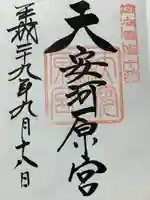 天安河原宮
平成二十九年九月十八日